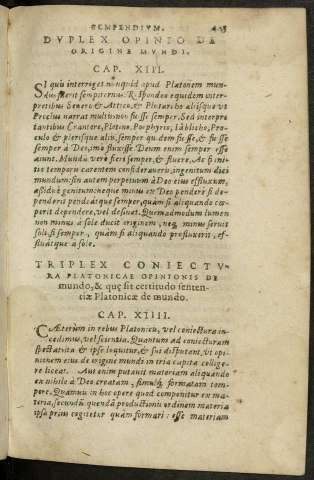 COMPENDIVM.
DVPLEX OPINIO DE
ORIGINE MVNDI.
CAP. XIII.
SI quis interroget nunquid apud Platonem mun-
dus fuerit sempiternus: Respondeo equidem inter-
pretibus Seuero & Attico, & Plutarcho aliisque vt
Proclus narrat multis non fuisse semper. Sed interpre
tantibus Crantore, Plotino, Porphyrio, Iāblicho, Pro-
culo & plerisque aliis, semper quidem fuisse, & fuisse
semper à Deo, imo fluxisse. Deum enim semper esse
aiunt. Mundū verò fieri semper, & fluere. Ac si ini-
tio temporū carentem consideraueris, ingenitum dici
mundum: sin autem perpetuum à Deo eius effluxum,
assiduè genitum: neque minus ex Deo pendere si de-
penderit pendeátque semper, quàm si aliquando cœ-
perit dependere, vel desinat. Quemadmodum lumen
non minus à sole ducit originem, neq; minus seruit
soli si semper, quàm si aliquando profluxerit, ef-
fluátque à sole.
TRIPLEX CONIECTV-
RA PLATONICAE OPINIONIS DE
mundo, & quę sit certitudo senten-
tiæ Platonicæ de mundo.
CAP. XIIII.
CAEterùm in rebus Platonicis, vel coniectura in-
cedimus, vel scientia. Quantum ad coniecturam
spectat, ita & ipse loquitur, & sui disputant, vt opi-
nionem eius de origine mundi in tria capita collige-
re liceat. Aut enim putant materiam aliquando
ex nihilo à Deo creatam, simulq; formatam tem-
pore. Quamuis in hoc opere quod componitur ex ma-
teria, secundū quendā productionis ordinem materia
ipsa prius cogitetur quàm formari: esse materiam